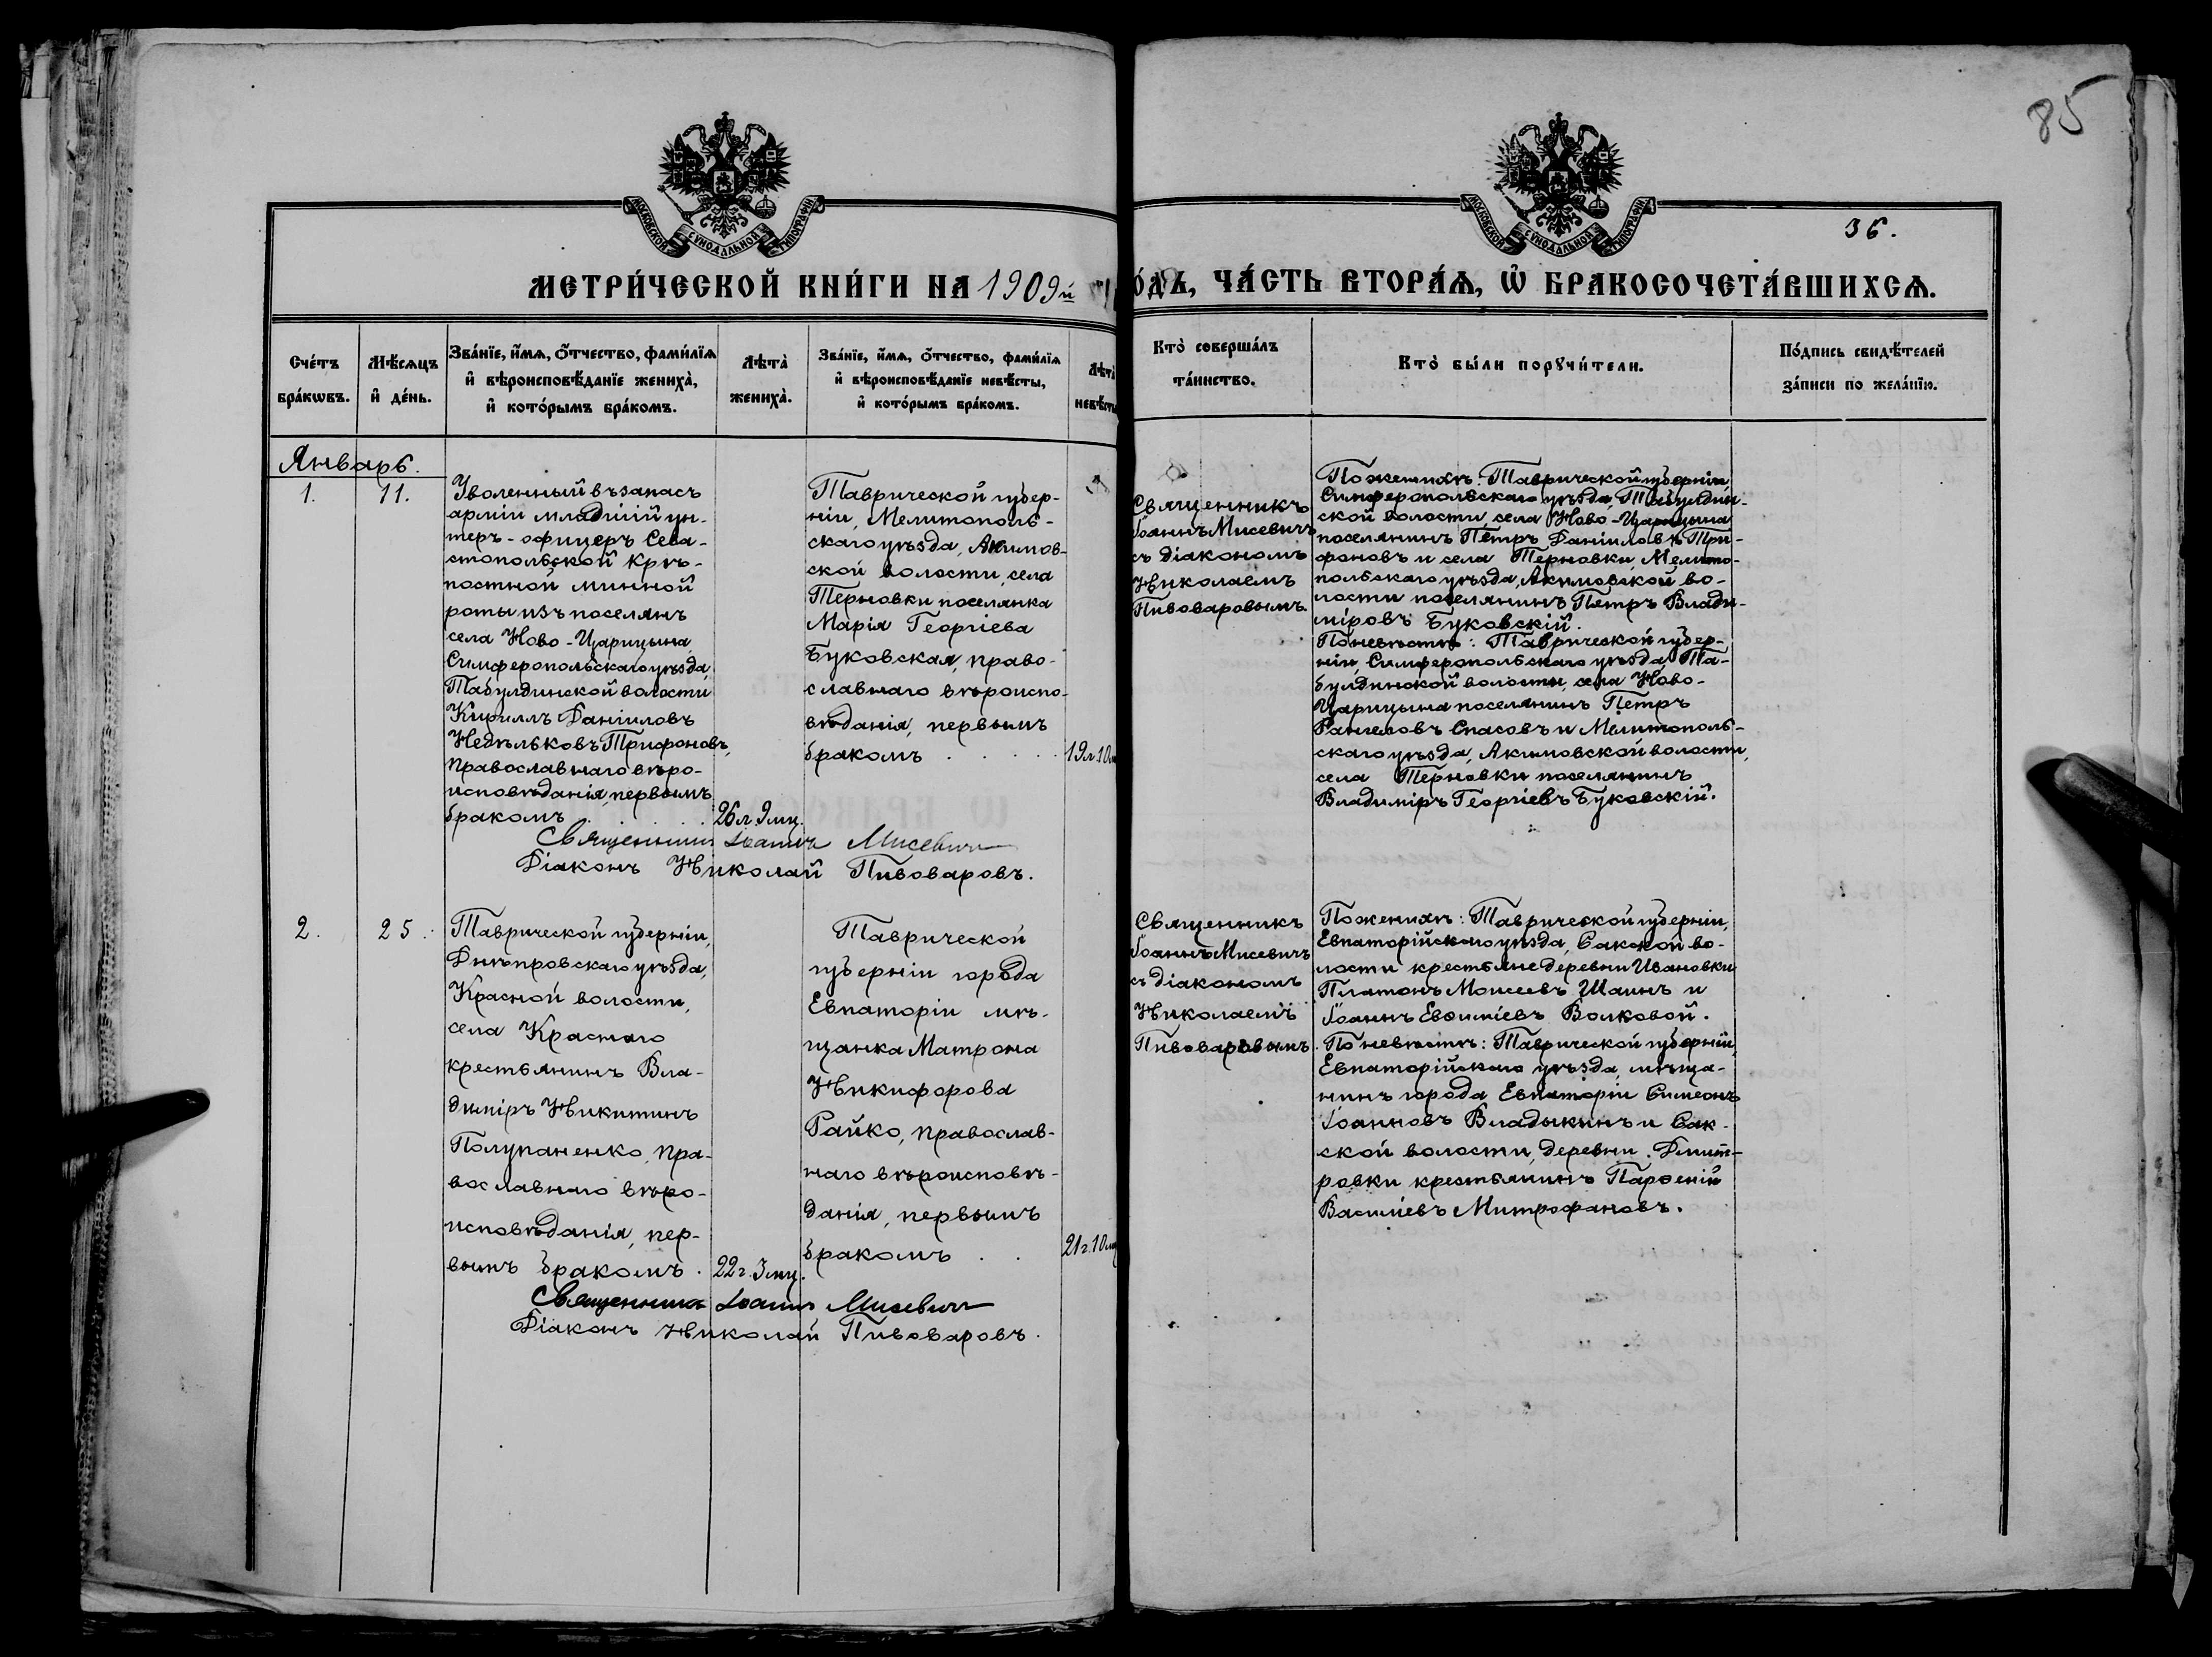 85
36.
МОСКОВСКОЙ СѴНОДАЛЬНОЙ ТИПОГРАФІИ
МОСКОВСКОЙ СѴНОДАЛЬНОЙ ТИПОГРАФІИ
МЕТРИ́ЧЕСКОЙ КНИ́ГИ НА 1909й
О́ДЪ, ЧА́СТЬ ВТОРА́Ѧ, Ѽ БРАКОСОЧЕТА́ВШИХСѦ.
Сче́тъ
бра́кѡвъ.
Мѣ́сѧцъ
и҆ де́нь.
Зва́нїе, и҆́мѧ, ѻ҆́тчество, фами́лїѧ
и҆ вѣроисповѣ́данїе жениха̀,
и҆ кото́рымъ бра́комъ.
Лѣта̀
жениха̀.
Зва́нїе, и҆́мѧ, ѻ҆́тчество, фами́лїѧ
и҆ вѣроисповѣ́данїе невѣ́сты,
и҆ кото́рымъ бра́комъ.
Лѣта̀
невѣ́сты
Кто̀ соверша́лъ
та́инство.
Кто̀ бы́ли порꙋчи́тели.
По́дпись свидѣ́телей
за́писи по жела́нїю.
Январь.
1.
11.
Уволенный въ запасъ
арміи младшій ун-
теръ-офицеръ Сева-
стопольской Крѣ-
постной минной
роты изъ поселянъ
села Ново-Царицына,
Симферопольскаго уѣзда,
Табулдинской волости
Кириллъ Даніиловъ
Недѣльковъ Трифоновъ,
православнаго вѣро-
исповѣданія, первымъ
бракомъ . . . .
26 л. 9 мц.
Таврической губер-
ніи, Мелитополь-
скаго уѣзда, Акимов-
ской волости, села
Терновки поселянка
Марія Георгіева
Буковская, право-
славнаго вѣроиспо-
вѣданія, первымъ
бракомъ . . . .
19 л. 10 м
Священникъ
Іоаннъ Мисевичъ
съ діакономъ
Николаемъ
Пивоваровымъ.
По женихѣ: Таврической губерніи,
Симферопольскаго уѣзда, Табулдин-
ской волости, села Ново-Царицына
поселянинъ Петръ Даніиловъ Три-
фоновъ и села Терновки, Мелито-
польскаго уѣзда, Акимовской во-
лости поселянинъ Петръ Влади-
міровъ Буковскій.
По невѣстѣ: Таврической губер-
ніи, Симферопольскаго уѣзда, Та-
булдинской волости, села Ново-
Царицына поселянинъ Петръ
Рангеловъ Спасовъ и Мелитополь-
скаго уѣзда, Акимовской волости,
села Терновки поселянинъ
Владиміръ Георгіевъ Буковскій.
Священникъ Іоаннъ Мисевичъ
Діаконъ Николай Пивоваровъ.
2.
25.
Таврической губерніи,
Днѣпровскаго уѣзда,
Красной волости,
села Краснаго
крестьянинъ Вла-
диміръ Никитинъ
Полупаненко, пра-
вославнаго вѣро-
исповѣданія, пер-
вымъ бракомъ.
22 г. 3 мц.
Таврической
губерніи города
Евпаторіи мѣ-
щанка Матрона
Никифорова
Райко, православ-
наго вѣроисповѣ-
данія, первымъ
бракомъ . .
21 г. 10 мц
Священникъ
Іоаннъ Мисевичъ
съ діакономъ
Николаемъ
Пивоваровымъ.
По женихѣ: Таврической губерніи,
Евпаторійскаго уѣзда, Сакской во-
лости крестьяне деревни Ивановки
Платонъ Моисеевъ Шаинъ и
Іоаннъ Евѳиміевъ Волковой.
По невѣстѣ: Таврической губерніи,
Евпаторійскаго уѣзда, мѣща-
нинъ города Евпаторіи Симеонъ
Іоанновъ Владыкинъ и Сак-
ской волости, деревни Дмит-
ровки крестьянинъ Парѳеній
Василіевъ Митрофановъ.
Священникъ Іоаннъ Мисевичъ
Діаконъ Николай Пивоваровъ.